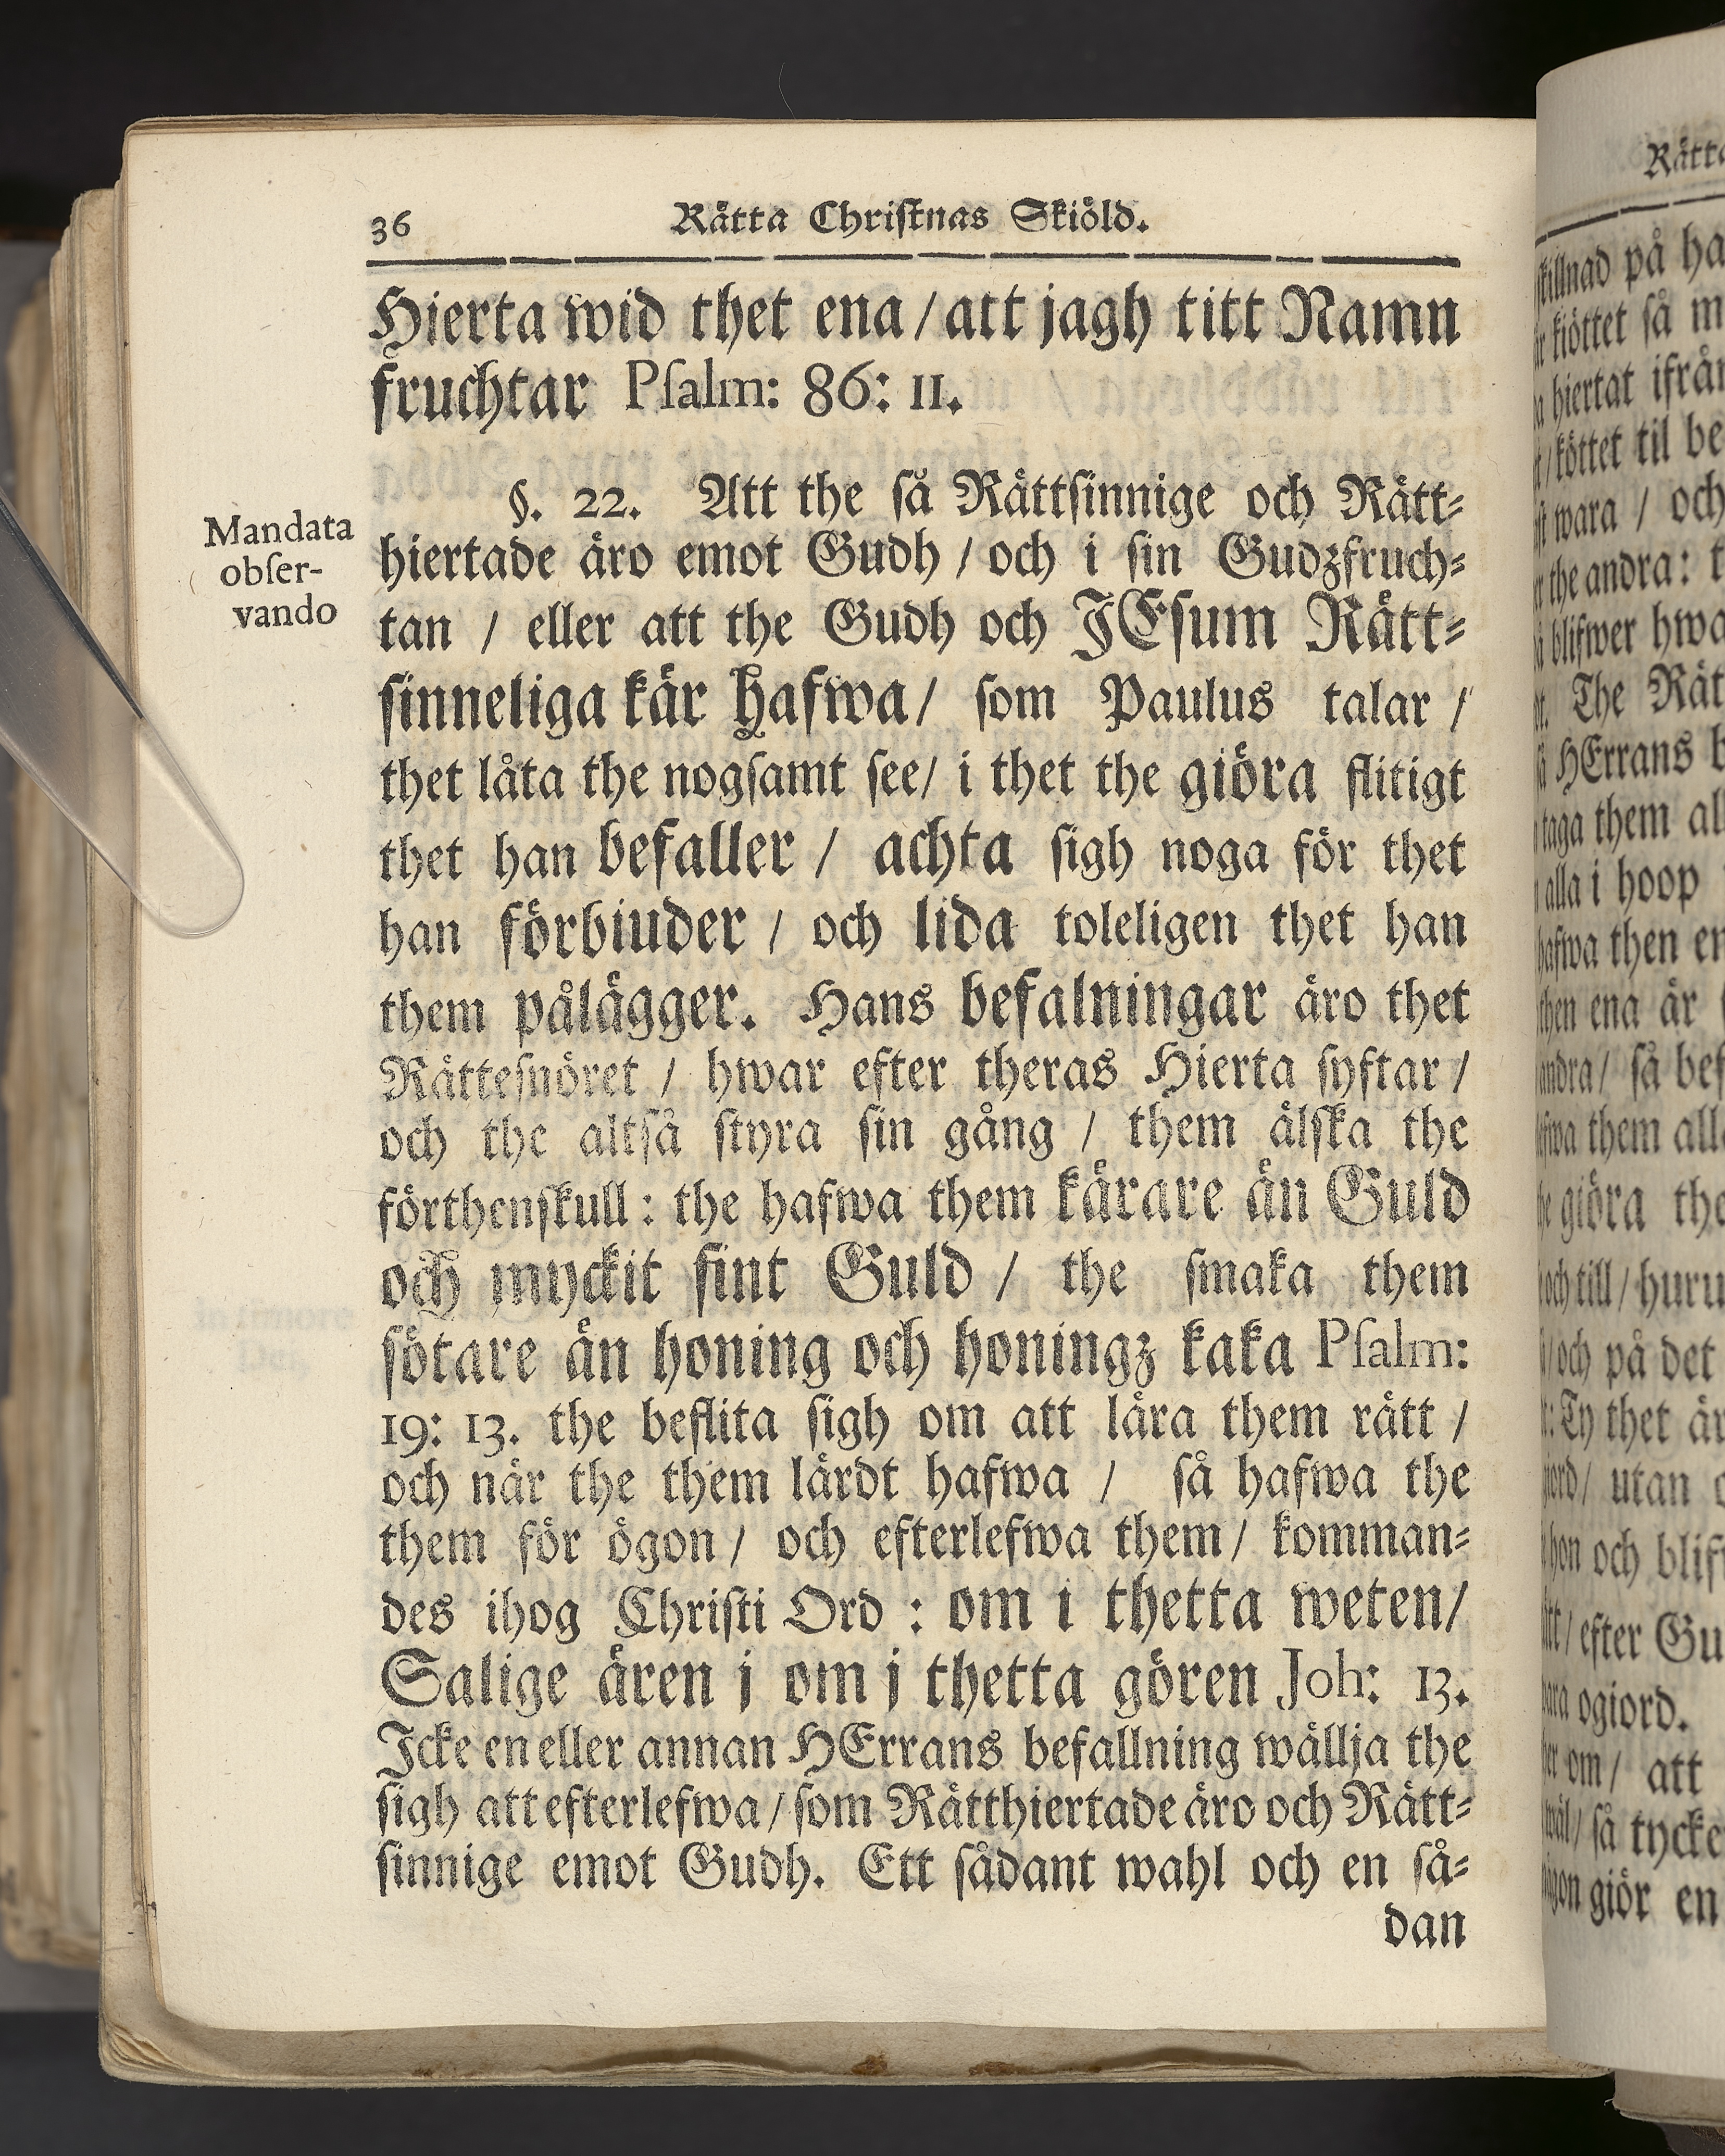 36 Rätta Christnas Skiöld.
Hierta wid thet ena / att jagh titt Namn
fruchtar Psalm: 86: 11.
§. 22. Att the så Rättsinnige och Rätt-
hiertade äro emot Gudh / och i sin Gudzfruch-
tan / eller att the Gudh och JEsum Rätt-
sinneliga kär hafwa / som Paulus talar /
thet låta the nogsamt see / i thet the giöra flitigt
thet han befaller / achta sigh noga för thet
han förbiuder / och lida toleligen thet han
them pålägger. Hans befalningar äro thet
Rättesnöret / hwar efter theras Hierta syftar /
och the altså styra sin gång / them älska the
förthenskull : the hafwa them kärare än Guld
och myckit fint Guld / the smaka them
sötare än honing och honingz kaka Psalm:
19: 13. the beflita sigh om att lära them rätt /
och när the them lärdt hafwa / så hafwa the
them för ögon / och efterlefwa them / komman-
des ihog Christi Ord : om i thetta weten /
Salige ären j om j thetta gören Joh: 13.
Icke en eller annan HErrans befallning wällja the
sigh att efterlefwa / som Rätthiertade äro och Rätt-
sinnige emot Gudh. Ett sådant wahl och en så-
dan
Mandata
obser-
vando
skillnad på
kiöttet så
hiertat
köttet til
wara / och
the andra:
blifwer
The
HErrans
taga them
alla i hoop
hafwa then
then ena är
andra / så
them
giöra
och till /
och på det
Ty thet är
utan
och
efter
ogiord.
om / att
så
giör en